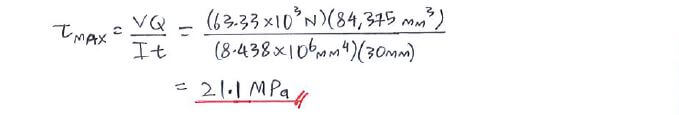 τMAX = VQ / It = (63.33 ×10³ N)(84,375 mm³) / (8.438×10⁶ mm⁴)(30mm)
= 21.1 MPa